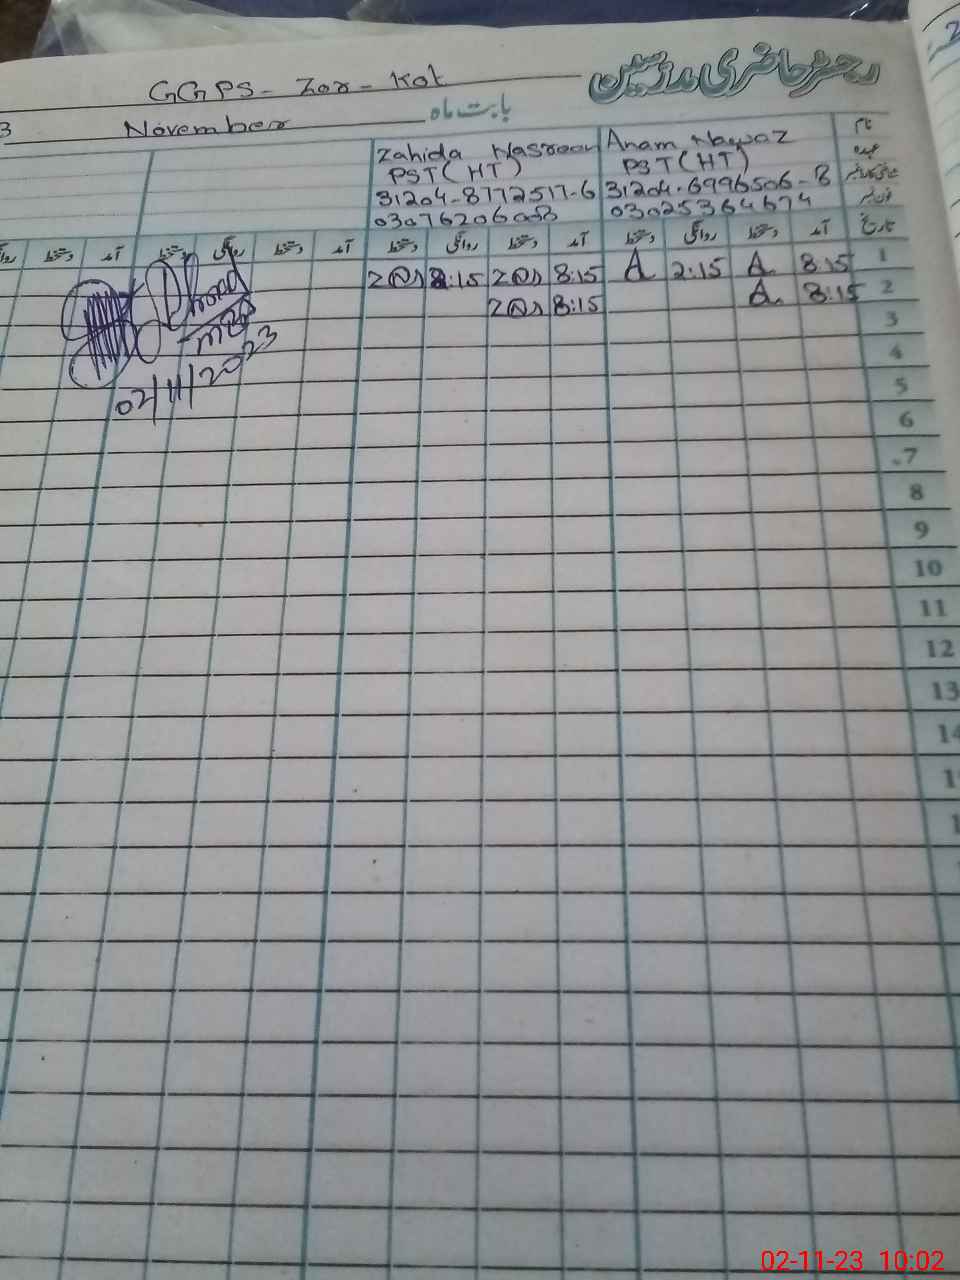 رجسٹر حاضری مدرسین
GGPS - Zor - Kot
بابت ماہ November 3
نام Anam Nawaz Zahida Nasreen
عہدہ PST (HT) PST (HT)
31204-6996506-8 31204-8772517-6
فون نمبر 03025364674
تاریخ آمد دستخط روانگی دستخط آمد دستخط روانگی دستخط آمد دستخط روانگی دستخط آمد دستخط
1 8:15 A 2:15 A 8:15 ZN 2:15 ZN
2 8:15 A 8:15 ZN
3
4
5
6
7
8
9
10
11
12
13
02/11/2023
02-11-23 10:02